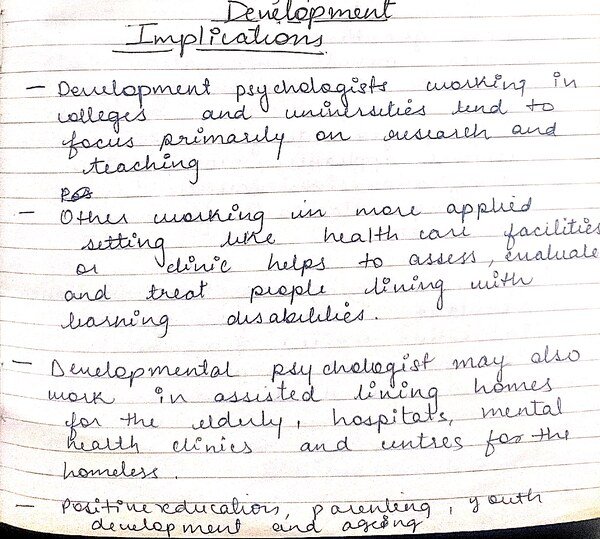 Development
Implications
- Development psychologists working in
colleges and universities tend to
focus primarily on research and
teaching
- Other working in more applied
setting like health care facilities
or clinic helps to assess, evaluate
and treat people lining with
learning disabilities.
- Developmental psychologist may also
work in assisted lining homes
for the elderly, hospitals, mental
health clinics and centres for the
homeless.
- Positive education, parenting, youth
development and ageing